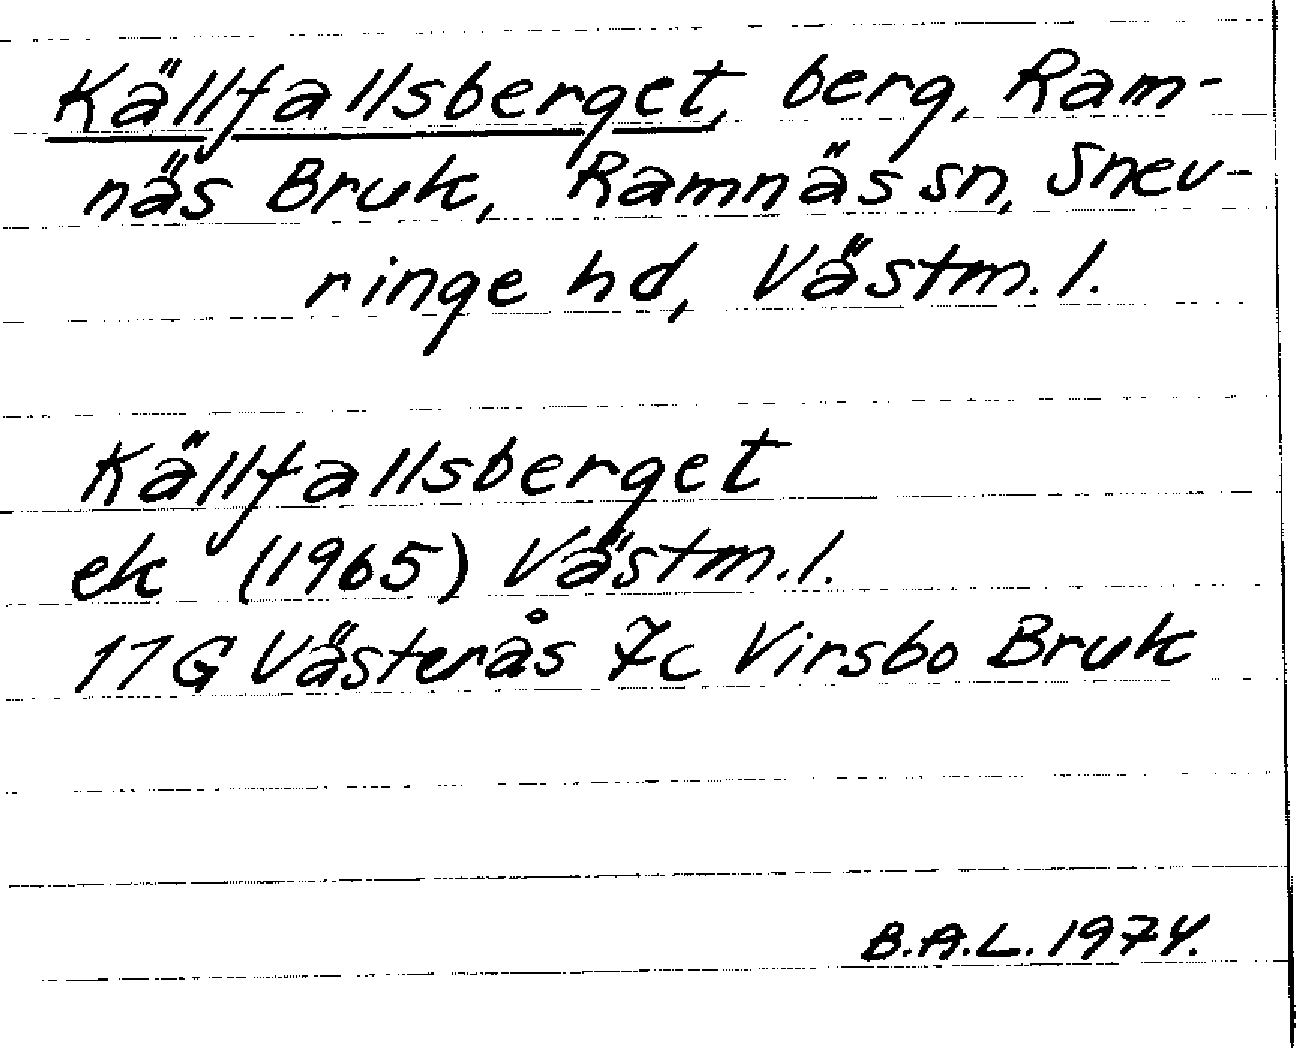 Källfallsberget, berg, Ram-
näs Bruk, Ramnäs sn, Snev-
ringe hd, Västm. l.
Källfallsberget
ek (1965) Västm. l.
11G Västerås 7c Virsbo Bruk
B.A.L. 1974.